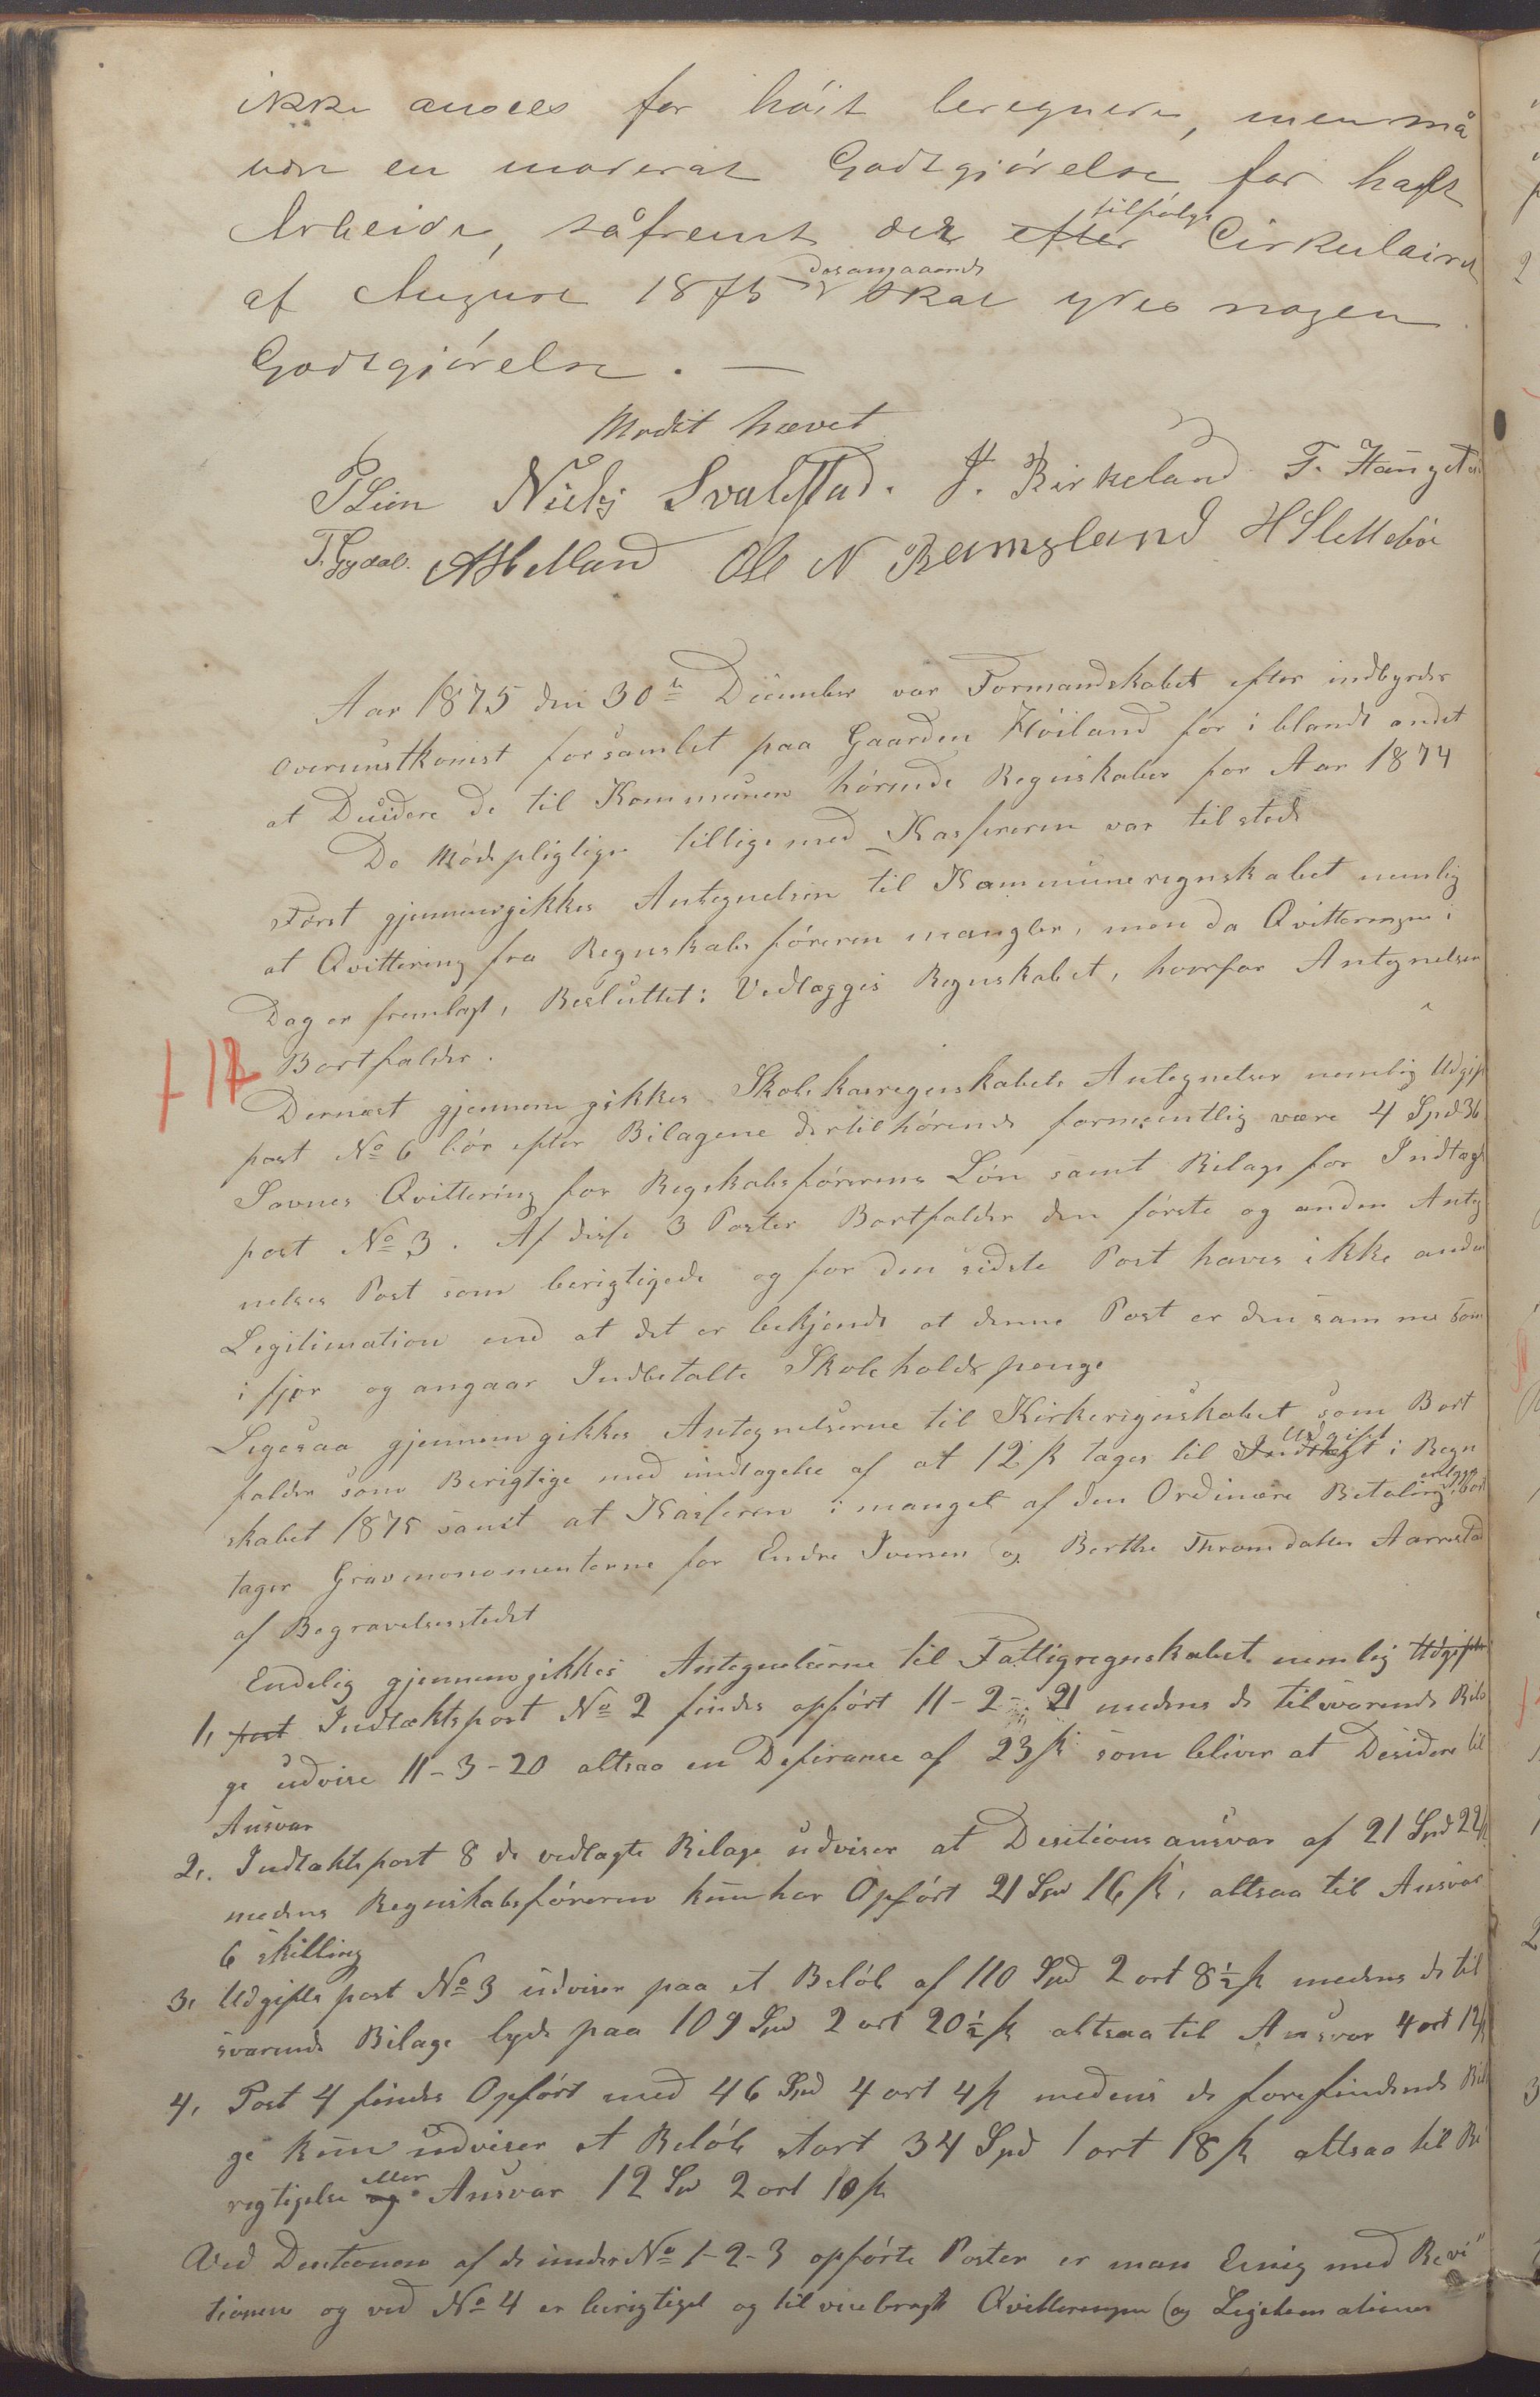 ikke ansees for höit beregnede, men må
være en moderat Godtgjörelse for haft
Arbeide, såfremt der efter tilfølge Cirkulaire
af August 1875 desangaaende skal ydes nogen
Godtgjörelse. —
Mödet hævet
Niels Svalestad. J. Birkeland
T. Gydal. A Helland Ole N Ramsland H Slettebö
Aar 1875 den 30te December var Formandskabet efter indbyrdes
overenstkomst forsamlet paa Gaarden Höiland for i blandt andet
at Decidere de til Kommunen hörende Regnskaber for Aar 1874
De Mödepligtige tilligemed Kassereren var tilstede
Först gjennemgikkes Antegnelsen til Kommuneregnskabet nemlig
at Qvittering fra Regnskabsföreren mangler, men da Qvitteringen i
Dag er fremlagt, Besluttet: Vedlægges Regnskabet, hvorfor Antegnelsen
Bortfalder.
Dernæst gjennemgikkes Skolekasregnskabets Antegnelser nemlig Udgifts
post No 6 bör efter Bilagene dertilhörende formeentlig være 4 Spd 36
Savnes Qvittering for Regskabsförerens Lön samt Bilage for Indtægts
post No 3. Af disse 3 Poster Bortfalder den förste og anden Anteg
nelses Post som berigtigede og for den sidste Post haves ikke anden
Legitimation end at det er bekjendt at denne Post er den samme som
i fjor og angaar Indbetalte Skoleholds penge
Ligesaa gjennemgikkes Antegnelserne til Kirkeregnskabet som Bort
falder som Berigtige med undtagelse af at 12 ß tages til Indtægt Udgift i Regn
skabet 1875 samt at Kasseren i mangel af den Ordinære Betaling bort
tager Gravmonomenterne for Endre Iversen og Berthe Thromdatter Aarrestad
af Begravelsesstedet
Endelig gjennemgikkes Antegnelserne til Fattigregnskabet nemlig Udgifts
1, post Indtæktspost No 2 findes opfört 11-2-21 medens de tilsvarende Bila
ge udvise 11-3-20 altsaa en Deferanse af 23 ß som bliver at Desidere til
Ansvar
2,. Indtæktspost 8 de vedlagte Bilage udviser at Desitions ansvar af 21 Spd 22 ß
medens Regnskabsföreren kun har Opfört 21 Spd 16 ß, altsaa til Ansvar
6 skilling
3, Udgifts post No 3 udviser paa et Belöb af 110 Spd 2 ort 8½ ß medens de til
svarende Bilage lyde paa 109 Spd 2 ort 20½ ß altsaa til Ansvar 4 ort 12 ß
4, Post 4 findes Opfört med 46 Spd 4 ort 4 ß medens de forefindende Bila
ge kun udviser et Belöb stort 34 Spd 1 ort 18 ß altsaa til Be
rigtigelse og eller Ansvar 12 Spd 2 ort 10 ß
Ved Desitionen af de under No 1-2-3 opförte Poster er man Enig med Revi
sionen og ved No 4 er berigtiget og tilveiebragt Qvitteringer og Legitemationer